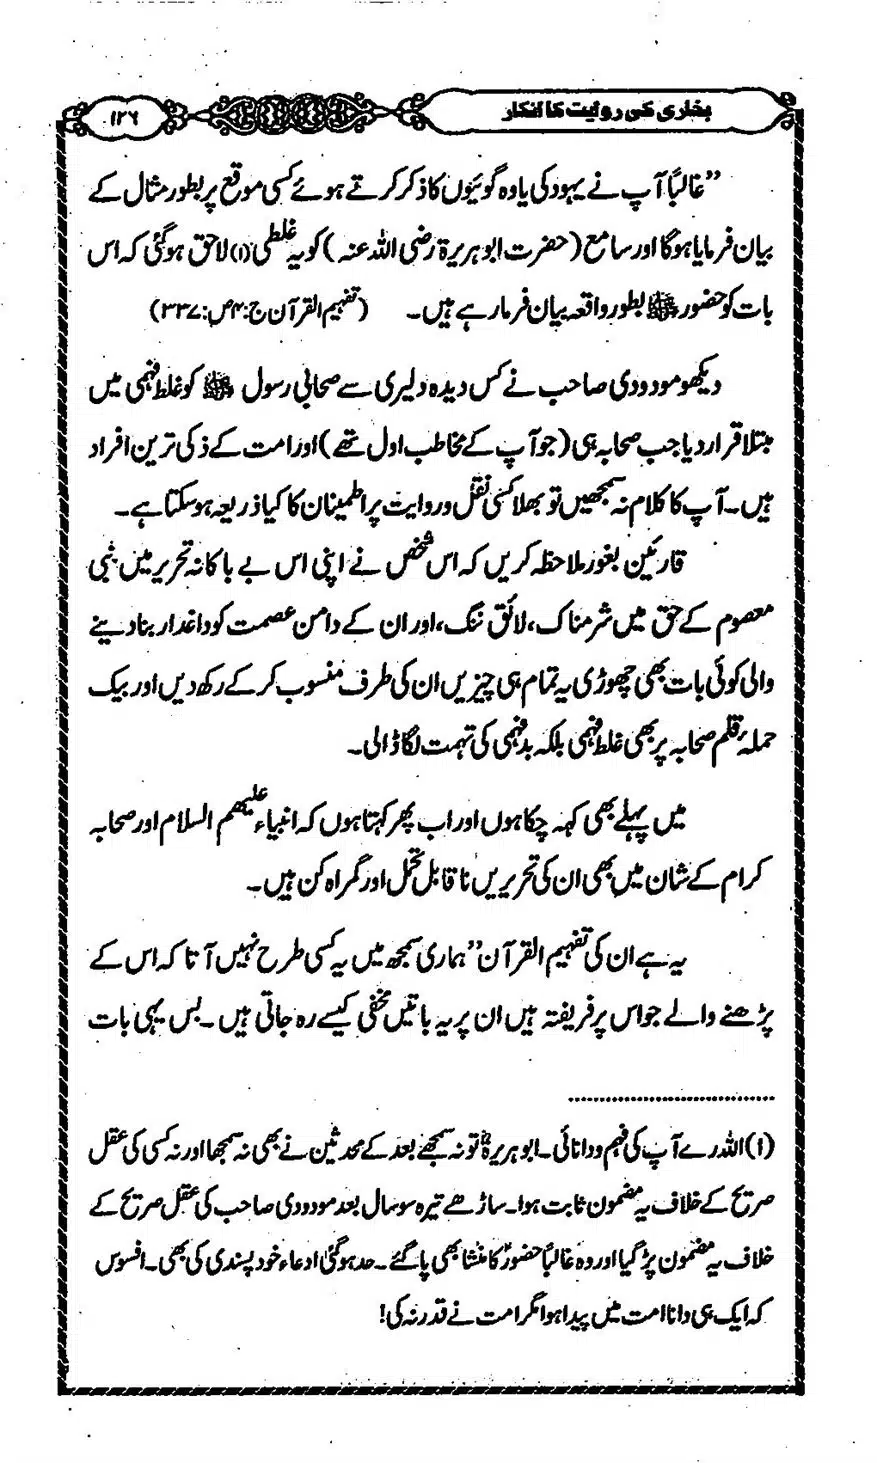 بخاری کی روایت کا انکار
۱۲۶
”غالباً آپ نے یہود کی یاوہ گوئیوں کا ذکر کرتے ہوئے کسی موقع پر بطور مثال کے
بیان فرمایا ہوگا اور سامع (حضرت ابو ہریرۃ رضی اللہ عنہ) کو یہ غلطی (۱) لاحق ہوگئی کہ اس
بات کو حضور ﷺ بطور واقعہ بیان فرما رہے ہیں۔ (تفہیم القرآن ج:۴ص:۳۳۷)
دیکھو مودودی صاحب نے کس دیدہ دلیری سے صحابی رسول ﷺ کو غلط فہمی میں
مبتلا قرار دیا جب صحابہ ہی (جو آپ کے مخاطب اول تھے) اور امت کے ذکی ترین افراد
ہیں۔ آپ کا کلام نہ سمجھیں تو بھلا کسی نقل و روایت پر اطمینان کا کیا ذریعہ ہوسکتا ہے۔
قارئین بغور ملاحظہ کریں کہ اس شخص نے اپنی اس بے باکانہ تحریر میں نبی
معصوم کے حق میں شرمناک، لائق ننگ، اور ان کے دامن عصمت کو داغدار بنا دینے
والی کوئی بات بھی چھوڑی یہ تمام ہی چیزیں ان کی طرف منسوب کرکے رکھ دیں اور بیک
حملۂ قلم صحابہ پر بھی غلط فہمی بلکہ بد فہمی کی تہمت لگا ڈالی۔
میں پہلے بھی کہہ چکا ہوں اور اب پھر کہتا ہوں کہ انبیاء علیھم السلام اور صحابہ
کرام کے شان میں بھی ان کی تحریریں نا قابل تحمل اور گمراہ کن ہیں۔
یہ ہے ان کی تفہیم القرآن ”ہماری سمجھ میں یہ کسی طرح نہیں آتا کہ اس کے
پڑھنے والے جو اس پر فریفتہ ہیں ان پر یہ باتیں مخفی کیسے رہ جاتی ہیں۔ بس یہی بات
(۱) اللہ رے آپ کی فہم و دانائی۔ ابو ہریرہؓ تو نہ سمجھے بعد کے محدثین نے بھی نہ سمجھا اور نہ کسی کی عقل
صریح کے خلاف یہ مضمون ثابت ہوا۔ ساڑھے تیرہ سو سال بعد مودودی صاحب کی عقل صریح کے
خلاف یہ مضمون پڑ گیا اور وہ غالباً حضورؐ کا منشا بھی پاگئے۔ حد ہوگئی ادعاء خود پسندی کی بھی۔ افسوس
کہ ایک ہی دانا امت میں پیدا ہوا مگر امت نے قدر نہ کی!